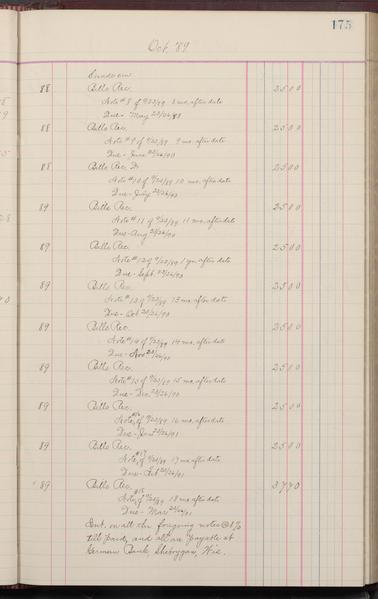 175
Oct. '89
Sundries
88 Bills Rec. 2500
Note #8 of 9/23/89 8 mo. after date
Due - May 23/26/90
88 Bills Rec. 2500
Note #9 of 9/23/89 9 mo. after date
Due - June 23/26/90
88 Bills Rec. 2500
Note #10 of 9/23/89 10 mo. after date
Due - July 23/26/90
89 Bills Rec. 2500
Note #11 of 9/23/89 11 mo. after date
Due - Aug 23/26/90
89 Bills Rec. 2500
Note #12 of 9/23/89 1 yr. after date
Due - Sept. 23/26/90
89 Bills Rec. 2500
Note #13 of 9/23/89 13 mo. after date
Due - Oct 23/26/90
89 Bills Rec. 2500
Note #14 of 9/23/89 14 mo. after date
Due - Nov 23/26/90
89 Bills Rec. 2500
Note #15 of 9/23/89 15 mo. after date
Due - Dec. 23/26/90
89 Bills Rec. 2500
Note #16 of 9/23/89 16 mo. after date
Due - Jan 23/26/91
89 Bills Rec. 2500
Note #17 of 9/23/89 17 mo. after date
Due - Feb 23/26/91
89 Bills Rec. 3770
Note #18 of 9/23/89 18 mo. after date
Due - Mar 23/26/91
Int. on all the foregoing notes @ 8%
till paid, and all are payable at
German Bank, Sheboygan, Wis.